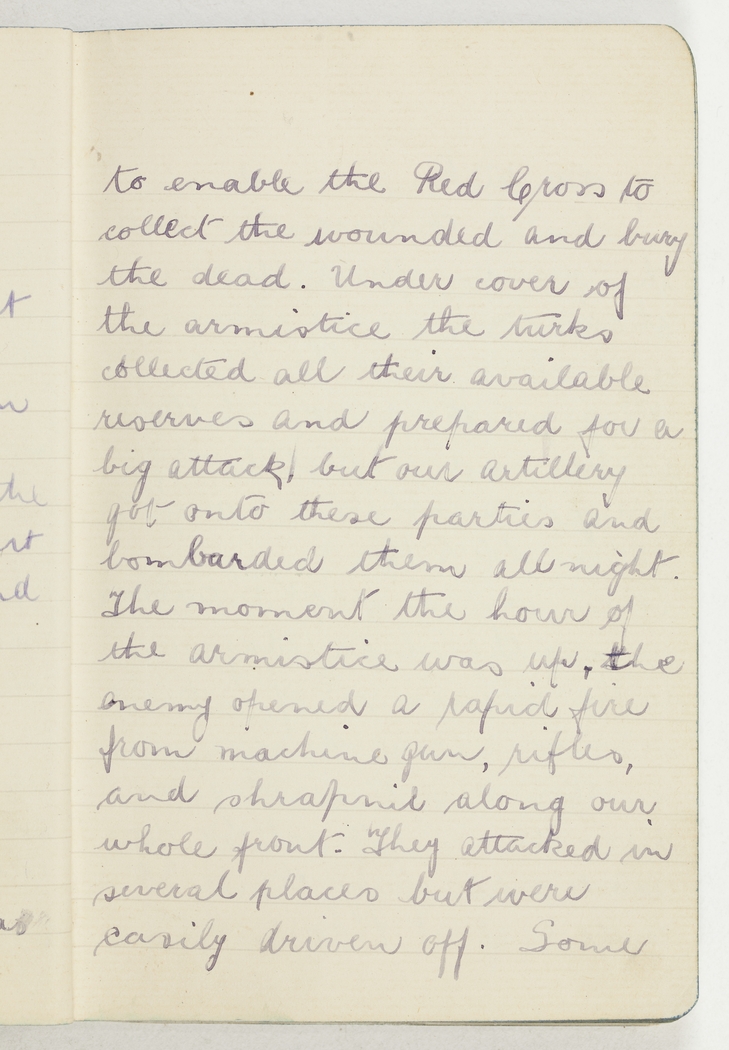 to enable the Red Cross to
collect the wounded and bury
the dead. Under cover of
the armistice the turks
collected all their available
reserves and prepared for a
big attack, but our artillery
got onto these parties and
bombarded them all night.
The moment the hour of
the armistice was up, the
enemy opened a rapid fire
from machine gun, rifles,
and shrapnil along our
whole front. They attacked in
several places but were
easily driven off. Some